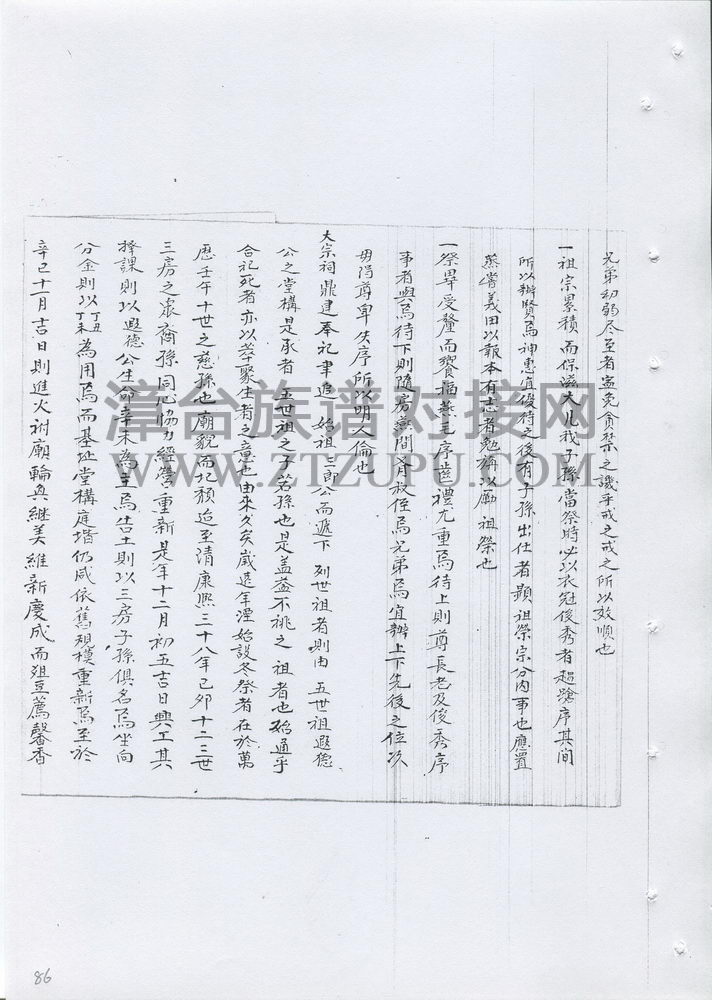 兄弟初弱尽至者寔免貪禁之譏乎戒之戒之所以效順也
一祖宗累積而保滋大凡我子孫當祭時必以衣冠後秀者趨蹌序其間
所以辦賢焉神惠宜優待之後有子孫出仕者顯祖榮宗分内事也應置
蒸嘗義田以報本有志者勉旃以勵 祖祭也
一祭畢受釐而饗福燕毛序齒禮尤重焉待上則尊長老及後秀序
事者與焉待下則隨房燕間有叔侄焉兄弟焉宜辦上下先後之位次
毋得尊卑失序所以明人倫也
大宗祠鼎建奉祀聿追 始祖三郎公而遞下 列世祖者則由 五世祖遐德
公之堂構是承者 五世祖之子若孫也是盖益不祧之 祖者也始通乎
合祀死者亦以萃聚生者之意也由來久矣歲遠年湮始設冬祭者在於萬
歷壬午十世之慈孫也廟貌而圮頹迨至清康熙三十八年己卯十二三世
三房之衆裔孫同心協力經營重新是年十二月初五吉日興工其
擇課則以遐德公生命辛未為主焉告土則以三房子孫俱名焉坐向
分金則以丁丑丁未為用焉而基址堂構庭堦仍咸依舊規模重新焉至於
辛巳十一月吉日則進火祔廟輪奐继美維新慶成而俎豆薦馨香
漳台族谱对接网
WWW.ZTZUPU.COM
86